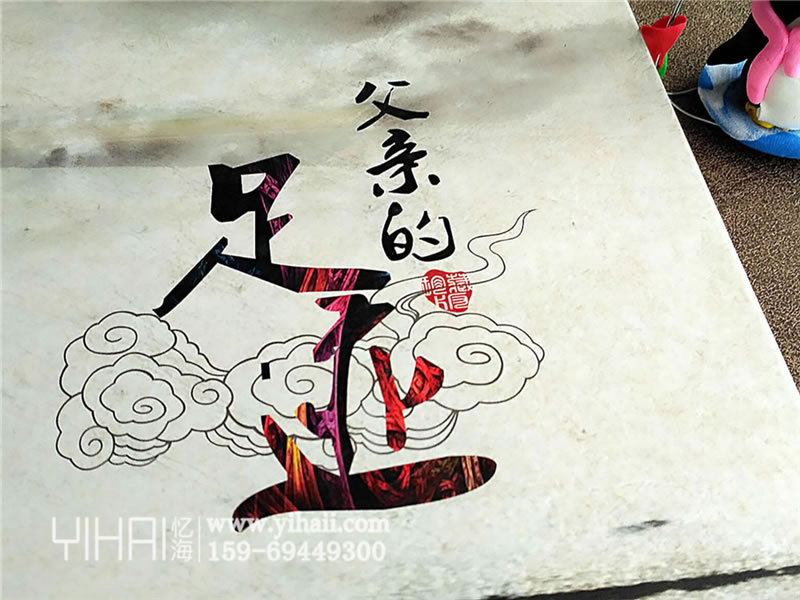 父亲的
足
YIHAI 忆海
www.yihaii.com
159-69449300